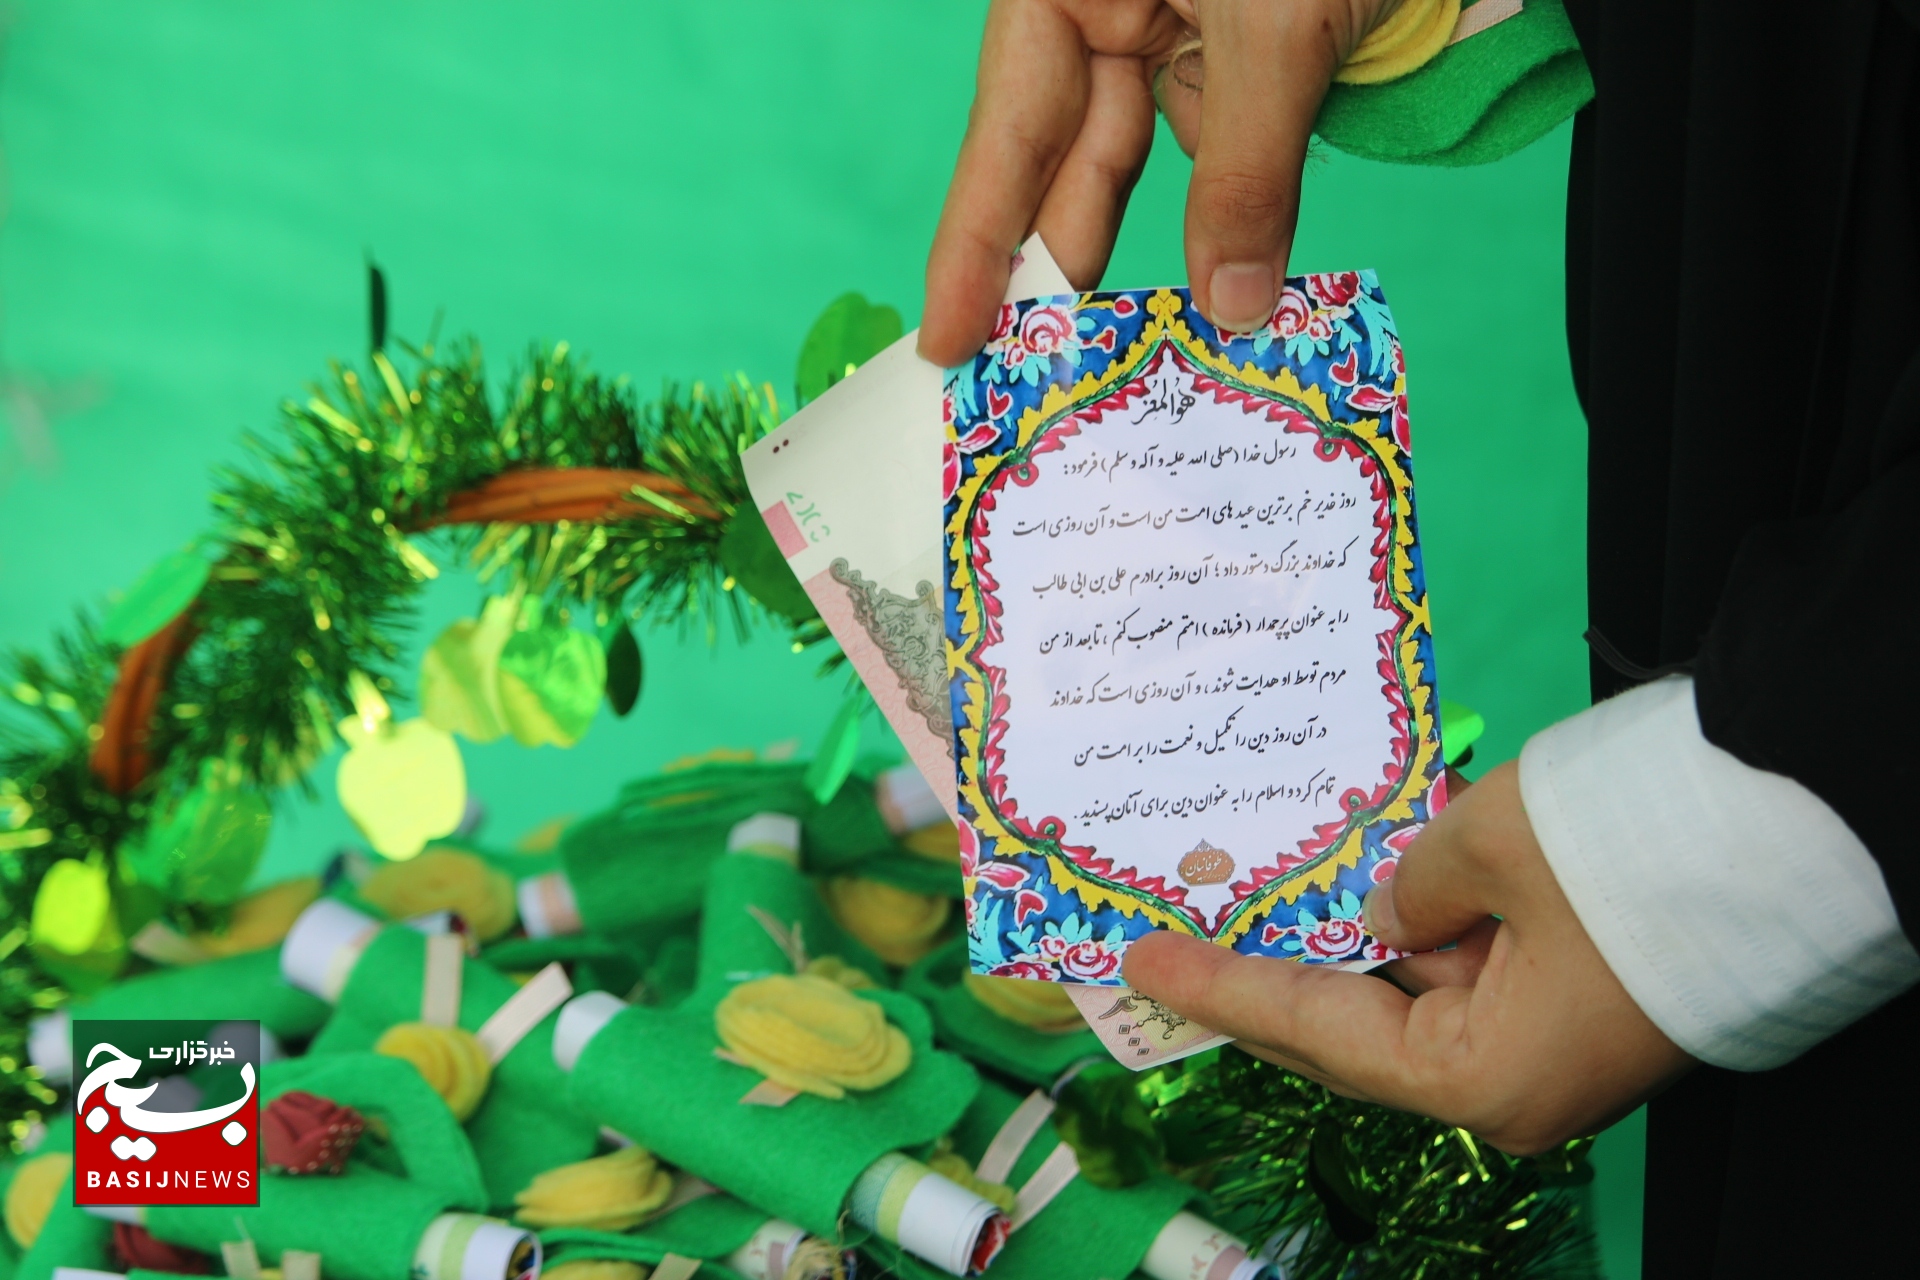 هوالمعز
رسول خدا (صلی الله علیه و آله و سلم) فرمود:
روز غدیر خم برترین عید های امت من است و آن روزی است
که خداوند بزرگ دستور داد؛ آن روز برادرم علی بن ابی طالب
را به عنوان پرچمدار (فرمانده) امتم منصوب کنم، تا بعد از من
مردم توسط او هدایت شوند، و آن روزی است که خداوند
در آن روز دین را تکمیل و نعمت را بر امت من
تمام کرد و اسلام را به عنوان دین برای آنان پسندید.
طوفانیان
خبرگزاری
بسیج
BASIJNEWS